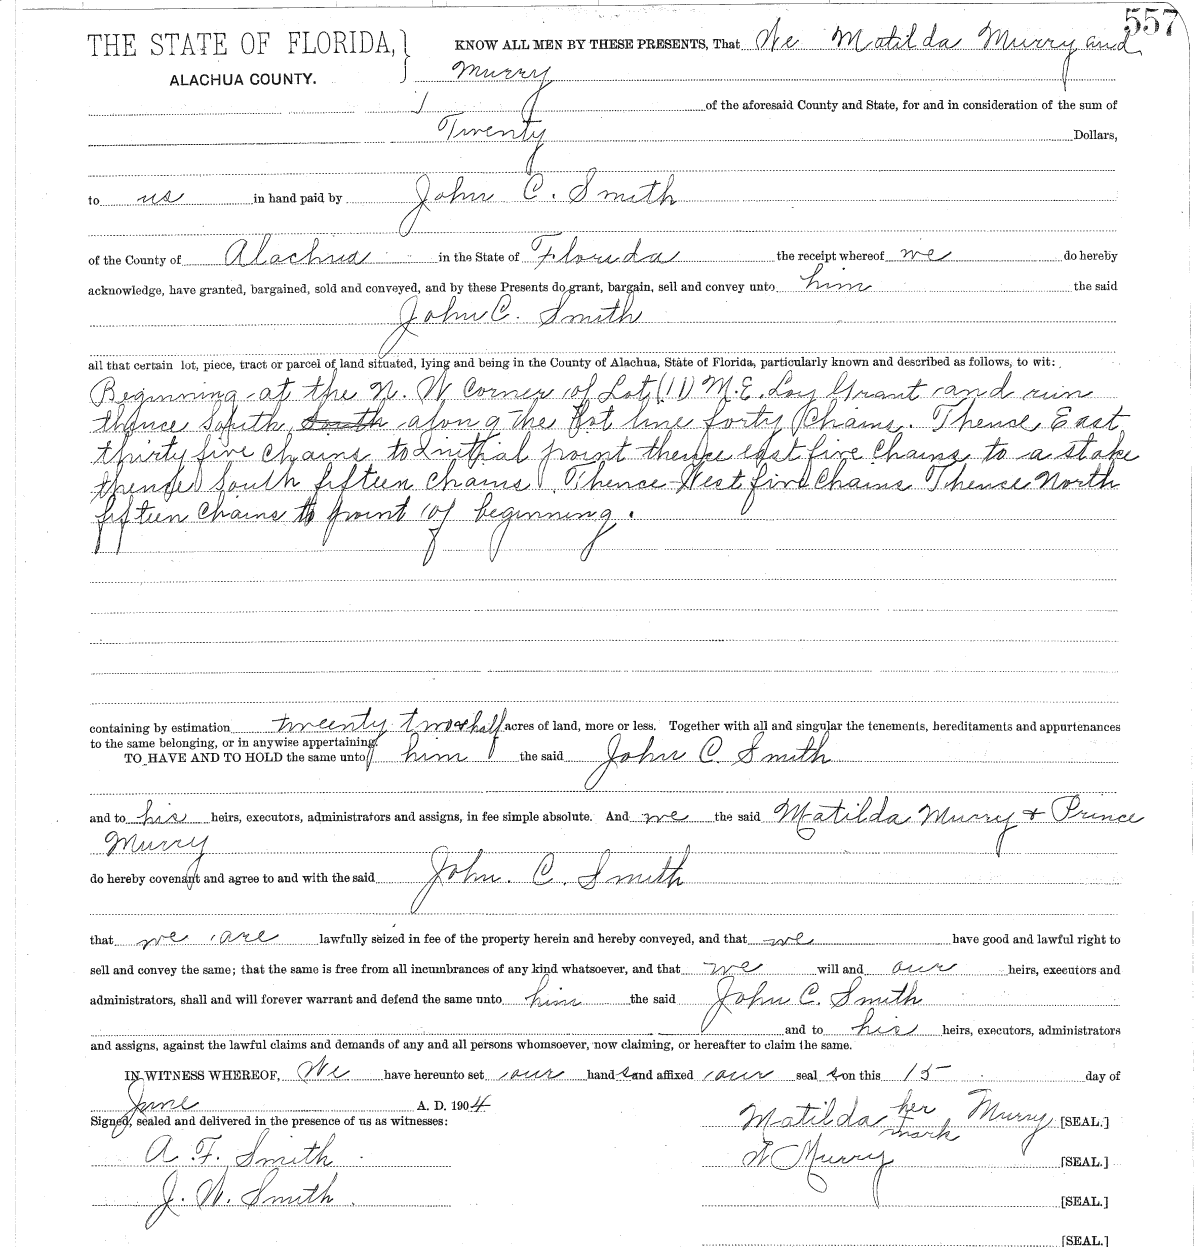 557
THE STATE OF FLORIDA, } KNOW ALL MEN BY THESE PRESENTS, That We Matilda Murry and
ALACHUA COUNTY. Murry
of the aforesaid County and State, for and in consideration of the sum of
Twenty Dollars,
to us in hand paid by John C. Smith
of the County of Alachua in the State of Florida the receipt whereof we do hereby
acknowledge, have granted, bargained, sold and conveyed, and by these Presents do grant, bargain, sell and convey unto him the said
John C. Smith
all that certain lot, piece, tract or parcel of land situated, lying and being in the County of Alachua, State of Florida, particularly known and described as follows, to wit:
Beginning at the N. W Corner of Lot (11) M.E. Grant and run
thence South South along the line forty Chains. Thence East
thirty five Chains to initial point thence east five Chains to a stake
thence South fifteen Chains Thence West five Chains Thence North
fifteen Chains to point of beginning.
containing by estimation tweenty two & half acres of land, more or less. Together with all and singular the tenements, hereditaments and appurtenances
to the same belonging, or in anywise appertaining.
TO HAVE AND TO HOLD the same unto him the said John C. Smith
and to his heirs, executors, administrators and assigns, in fee simple absolute. And we the said Matilda Murry & Prince
Murry
do hereby covenant and agree to and with the said John. C. Smith
that we are lawfully seized in fee of the property herein and hereby conveyed, and that we have good and lawful right to
sell and convey the same; that the same is free from all incumbrances of any kind whatsoever, and that we will and our heirs, executors and
administrators, shall and will forever warrant and defend the same unto him the said John C. Smith
and to his heirs, executors, administrators
and assigns, against the lawful claims and demands of any and all persons whomsoever, now claiming, or hereafter to claim the same.
IN WITNESS WHEREOF, We have hereunto set our hands and affixed our seals on this 15 day of
June A. D. 1904
Signed, sealed and delivered in the presence of us as witnesses:
Matilda her mark Murry [SEAL.]
A. F. Smith
Murry [SEAL.]
J. W. Smith
[SEAL.]
[SEAL.]